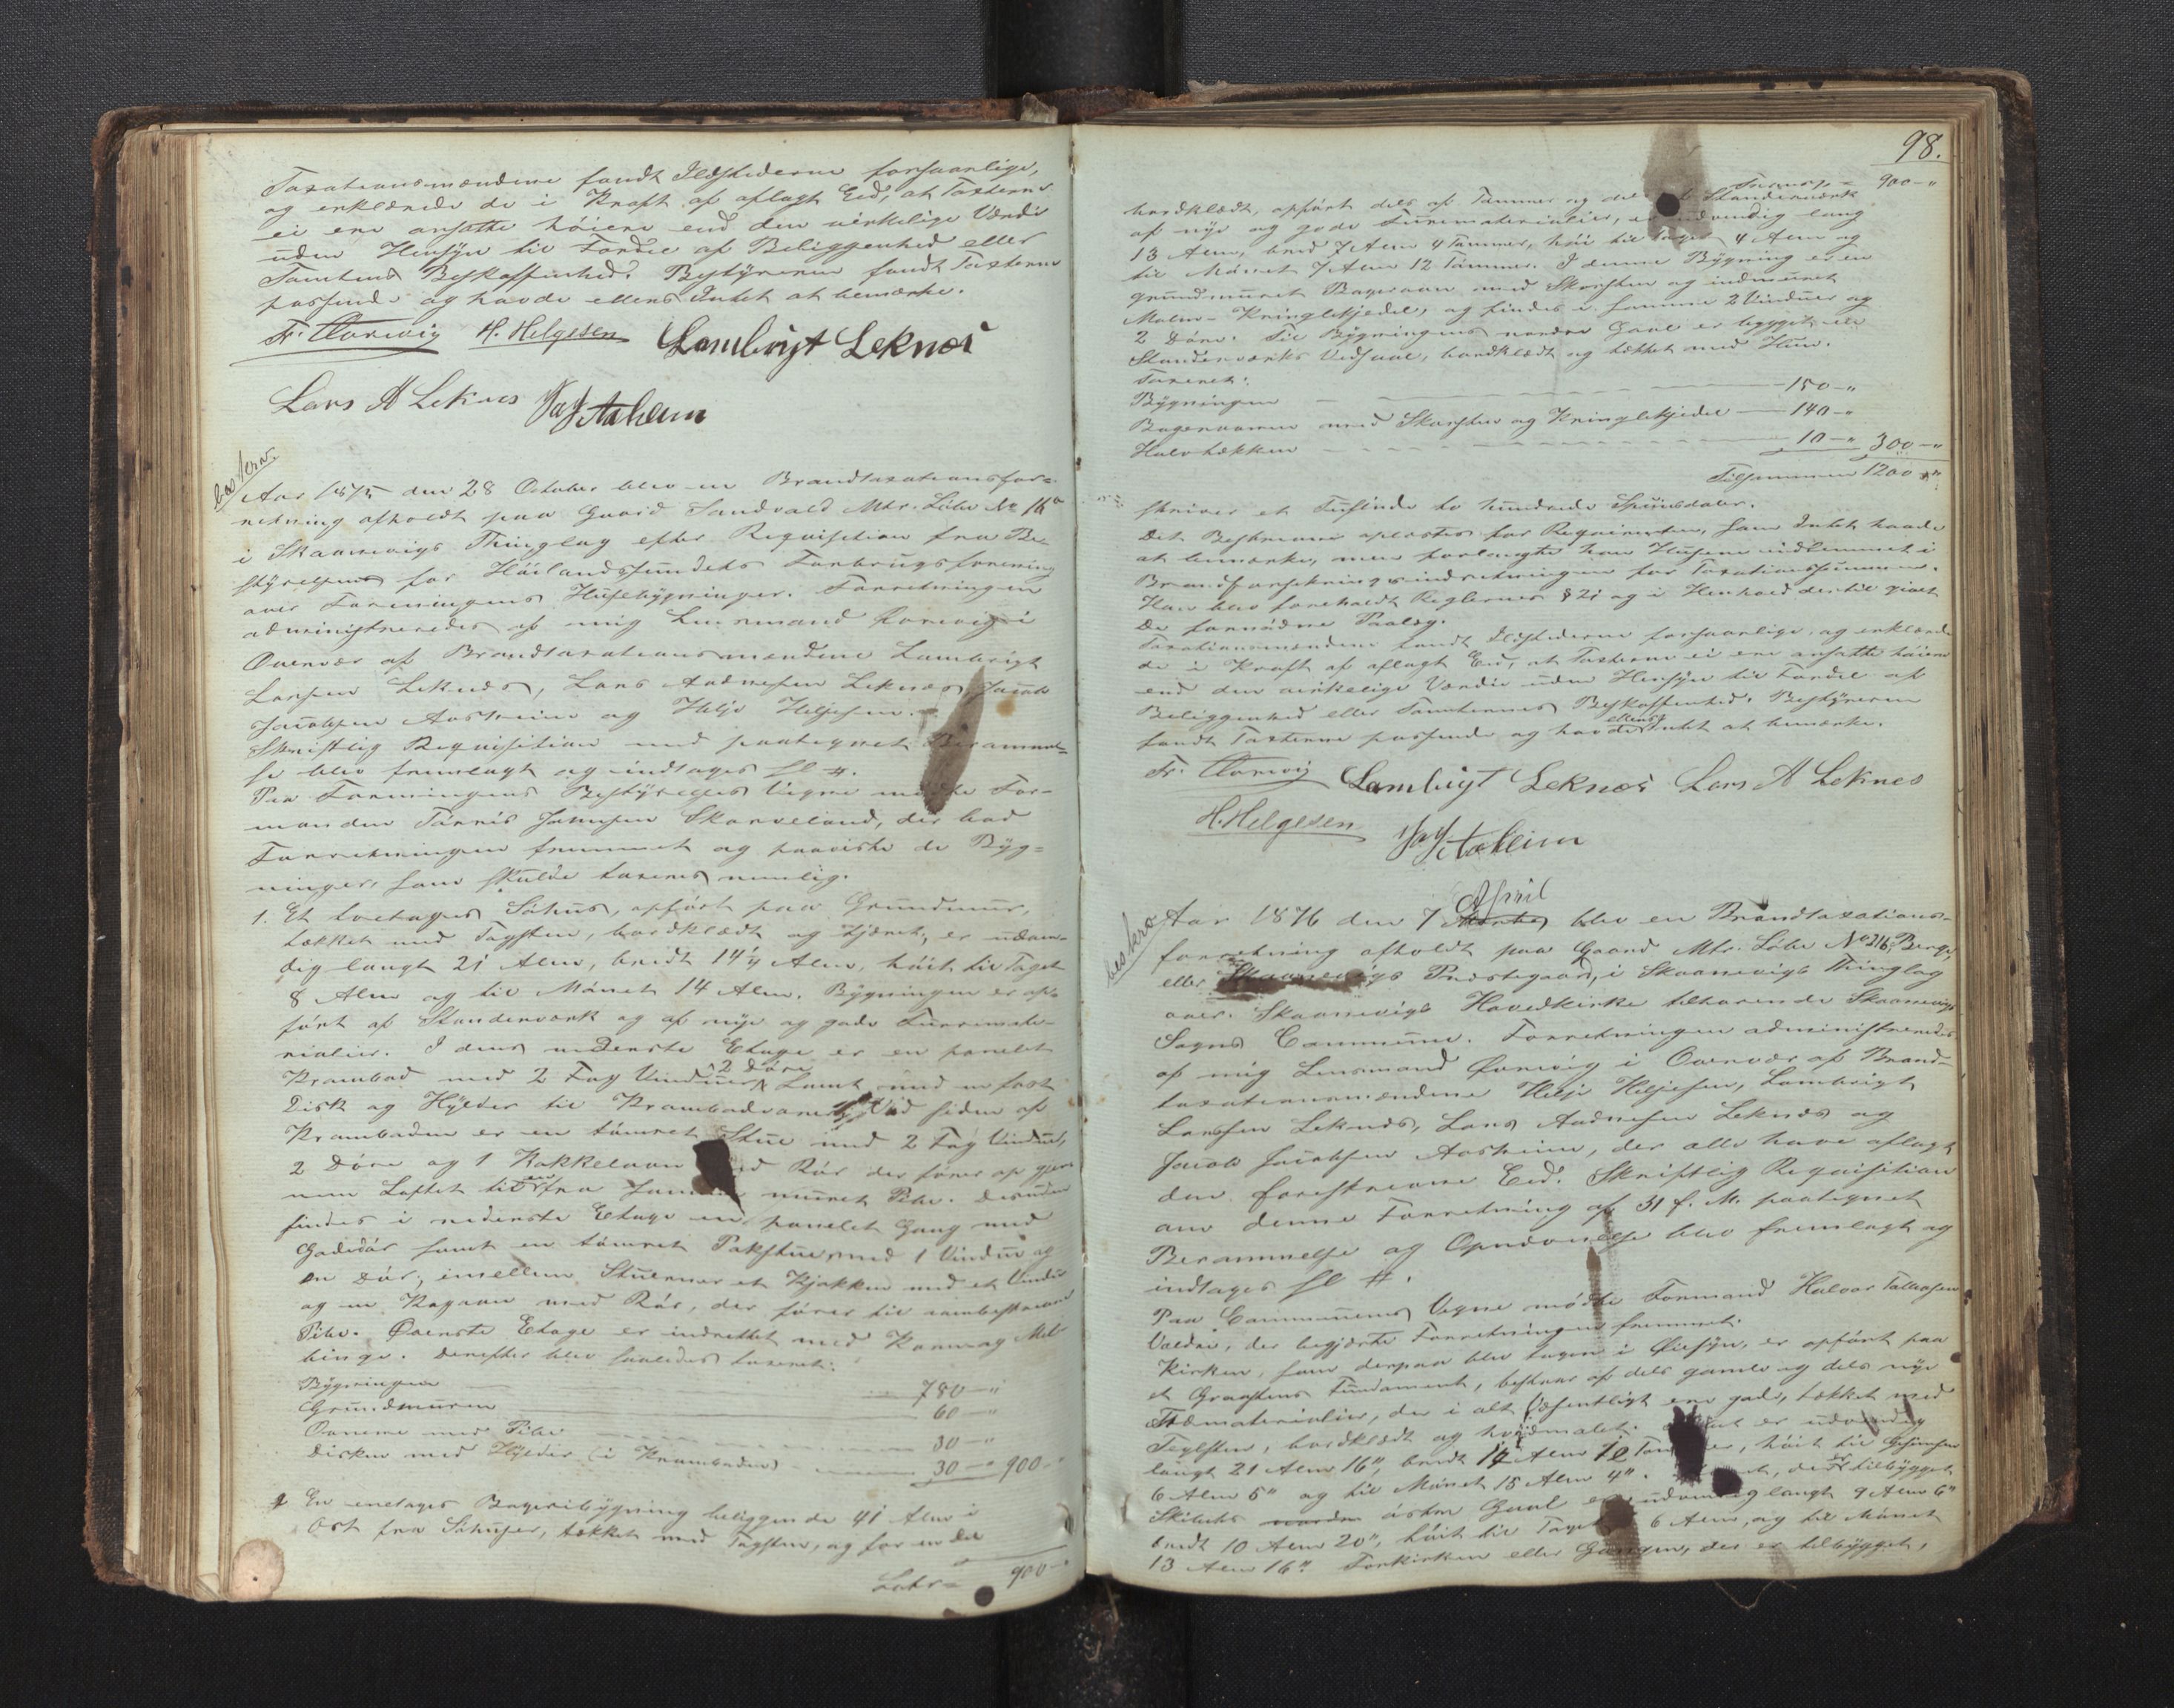 Taxationsmændene fandt Ildstederne forsvarlige,
og erklærede de i Kraft af aflagt Eed, at Taxterne
ei ere ansatte høiere end den virkelige Værdie
uden Hensyn til Fordele af Beliggenhed eller
Tomtens Beskaffenhed. Bestyreren fandt Taxterne
passende og havde ellers Intet at bemærke.
H. Helgesen Lambrigt Leknæs
Lars A Leknes J. J. Aaheim
beskrev.
Aar 1875 den 28 October blev en Brandtaxationsfor-
retning afholdt paa Gaard Sandvold Mtr. Løbe No 16a
i Skaanevigs Thinglag efter Requisition fra Be-
styrelsen for Høilandssundets Forbrugsforening
over Foreningens Husebygninger. Forretningen
administreredes af mig Lensmand i
Overvær af Brandtaxationsmændene Lambrigt
Larsen Leknæs, Lars Andersen Leknæs, Jacob
Jacobsen Aaheim og Helje Heljesen.
Skriftlig Requisition med paategnet Berammel-
se blev fremlagt og indtages sl #.
Paa Foreningens Bestyrelses Vegne mødte For-
manden Tørris Johnsen Skarveland, der bad
Forretningen fremmet og paaviste de Byg-
ninger, som skulde taxeres nemlig.
1. Et toetages Søhus, opført paa Grundmuur,
tækket med Tagsten, bordklædt og tjæret, er udven-
dig langt 21 Alen, bredt 14¼ Alen, høit til Taget
8 Alen og til Mønet 14 Alen. Bygningen er op-
ført af Standerværk og af nye og gode Furemate-
rialier. I dens nederste Etage er en panelet
Krambod med 2 Fag Vinduer, 2 Døre samt med en fast
Disk og Hylder til Krambodvarer. Ved siden af
Kramboden er en tømret Stue med 2 Fag Vinduer,
2 Døre og 1 Kakkelovn med Rør der fører op gjen-
nem Loftet til en fra muret Pibe. Desuden
findes i nederste Etage en panelet Gang med
Gadedør samt en tømret Pakstue, med 1 Vindue og
en Dør; imellem Stuerne et Kjøkken med et Vindue
og en Kogeovn med Rør, der fører til
Pibe. Øverste Etage er indrettet med Korn og Mel-
binge. Derefter blev saaledes taxeret:
Bygningen 780 - "
Grundmuren 60 - "
Ovnene med Pibe 30 - "
Disken med Hylder (i Kramboden) 30 - " 900 - "
2 En enetages Bageribygning beliggende 41 Alen i
Øst fra Søhuset, tækket med Tagsten, og for en Del
Lateris 900 - "
98.
Transp. 900 - "
bordklædt, opført dels af Tømmer og dels af Standerværk
af nye og gode Furematerialier, er udvendig lang
13 Alen, bred 7 Alen 4 Tommer, høi til Taget 4 Alen og
til Mønet 7 Alen 12 Tommer. I denne Bygning er en
grundmuret Bagerovn med Skorsten og indmuret
Malm-Kringlekjedel, og findes i samme 2 Vinduer og
2 Døre. Til Bygningens nordre Gavl er bygget en
Standerværks Vedskaal, bordklædt og tækket med Hun.
Taxeret:
Bygningen 150 - "
Bagerovnen med Skorsten og Kringlekjedel 140 - "
Halvtækken 10 - " 300 - "
Tilsammen 1200 - "
skriver et Tusinde to hundrede Speciesdaler.
Det Beskrevne oplæstes for Requirenten, som Intet havde
at bemærke, men forlangte han Husene indlemmet i
Brandforsikringsindretningen for Taxationssummen.
Han blev foreholdt Reglernes § 21 og i Henhold dertil givet
de fornødne Paalæg.
Taxationsmændene fandt Ildstederne forsvarlige, og erklærede
de i Kraft af aflagt Eed, at Taxterne ei ere ansatte høiere
end den virkelige Værdie uden Hensyn til Fordele af
Beliggenhed eller Tomternes Beskaffenhed. Bestyreren
fandt Taxterne passende og havde ellers Intet at bemærke.
Lambrigt Leknæs Lars A Leknes
H. Helgesen J. J. Aaheim
beskrev
Aar 1876 den 7 April blev en Brandtaxations-
forretning afholdt paa Gaard Mtr. Løbe No 216, Berge
eller Skaanevigs Præstegaard, i Skaanevigs Thinglag
over Skaanevigs Hovedkirke tilhørende Skaanevigs
Sogns Commune. Forretningen administreredes
af mig Lensmand i Overvær af Brand-
taxationsmændene Helje Heljesen, Lambrigt
Larsen Leknæs, Lars Andersen Leknæs og
Jacob Jacobsen Aaheim, der alle have aflagt
den foreskrevne Eed. Skriftlig Requisition
om denne Forretning af 31 f. M. paategnet
Berammelse og Opnævnelse blev fremlagt og
indtages sl #.
Paa Communens Vegne mødte Formand Halvor
der begjærte Forretningen fremmet.
Kirken, som derpaa blev tagen i Øiesyn, er opført paa
et Graastens Fundament, bestaar af dels gamle og dels nye
Træmaterialier, der i alt Væsentligt ere gode, tækket med
Teglsten, bordklædt og hvidmalet. er udvendig
langt 21 Alen 16", bredt 14 Alen 12 høit til Gesimsen
6 Alen 5" og til Mønet 15 Alen 4". der er tilbygget
Skibets østre Gavl er udvendig langt 9 Alen 6"
bredt 10 Alen 20", høit til Taget 6 Alen, og til Mønet
13 Alen 16". Forkirken eller Gangen, der er tilbygget,